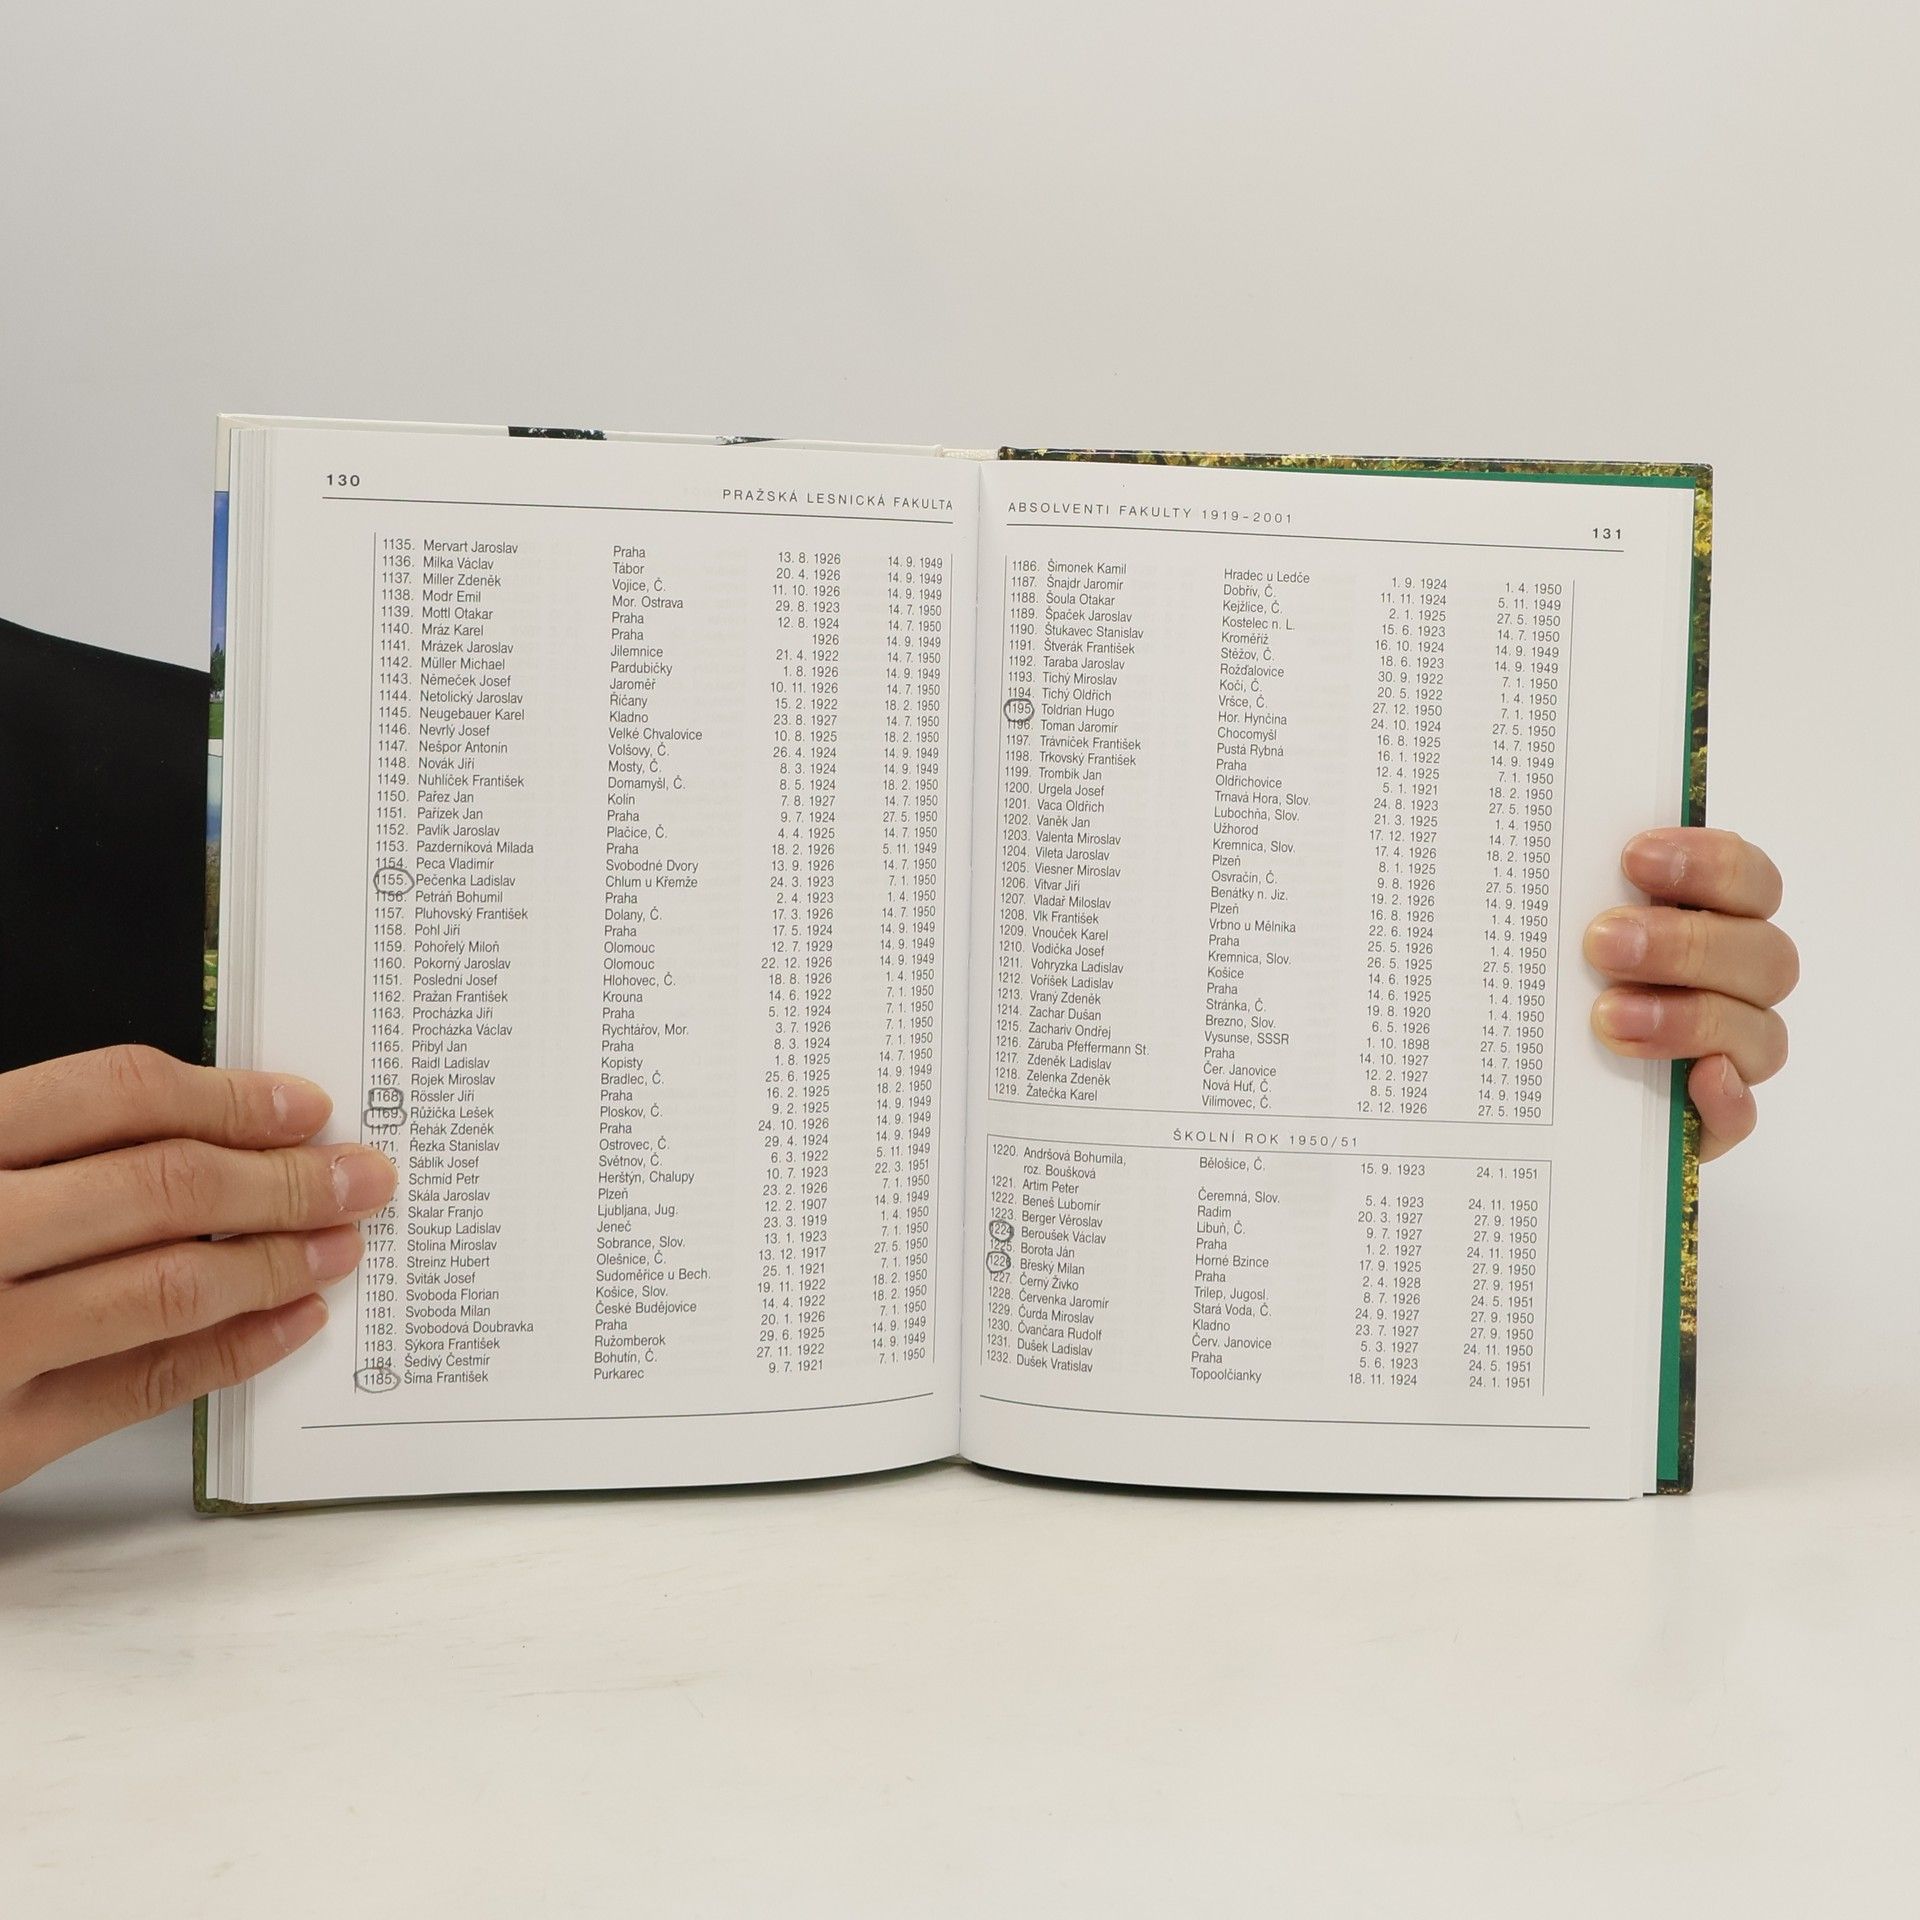 130
PRAŽSKÁ LESNICKÁ FAKULTA
1135. Mervart Jaroslav Praha 13. 8. 1926 14. 9. 1949
1136. Milka Václav Tábor 20. 4. 1926 14. 9. 1949
1137. Miller Zdeněk Vojice, Č. 11. 10. 1926 14. 9. 1949
1138. Modr Emil Mor. Ostrava 29. 8. 1923 14. 7. 1950
1139. Mottl Otakar Praha 12. 8. 1924 14. 7. 1950
1140. Mráz Karel Praha 1926 14. 9. 1949
1141. Mrázek Jaroslav Jilemnice 21. 4. 1922 14. 7. 1950
1142. Müller Michael Pardubičky 1. 8. 1926 14. 9. 1949
1143. Němeček Josef Jaroměř 10. 11. 1926 14. 7. 1950
1144. Netolický Jaroslav Říčany 15. 2. 1922 18. 2. 1950
1145. Neugebauer Karel Kladno 23. 8. 1927 14. 7. 1950
1146. Nevrlý Josef Velké Chvalovice 10. 8. 1925 18. 2. 1950
1147. Nešpor Antonín Volšovy, Č. 26. 4. 1924 14. 9. 1949
1148. Novák Jiří Mosty, Č. 8. 3. 1924 14. 9. 1949
1149. Nuhlíček František Domamyšl, Č. 8. 5. 1924 18. 2. 1950
1150. Pařez Jan Kolín 7. 8. 1927 14. 7. 1950
1151. Pařízek Jan Praha 9. 7. 1924 27. 5. 1950
1152. Pavlík Jaroslav Plačice, Č. 4. 4. 1925 14. 7. 1950
1153. Pazderníková Milada Praha 18. 2. 1926 5. 11. 1949
1154. Peca Vladimír Svobodné Dvory 13. 9. 1926 14. 7. 1950
1155. Pečenka Ladislav Chlum u Křemže 24. 3. 1923 7. 1. 1950
1156. Petráň Bohumil Praha 2. 4. 1923 1. 4. 1950
1157. Pluhovský František Dolany, Č. 17. 3. 1926 14. 7. 1950
1158. Pohl Jiří Praha 17. 5. 1924 14. 9. 1949
1159. Pohořelý Miloň Olomouc 12. 7. 1929 14. 9. 1949
1160. Pokorný Jaroslav Olomouc 22. 12. 1926 14. 9. 1949
1151. Poslední Josef Hlohovec, Č. 18. 8. 1926 1. 4. 1950
1162. Pražan František Krouna 14. 6. 1922 7. 1. 1950
1163. Procházka Jiří Praha 5. 12. 1924 7. 1. 1950
1164. Procházka Václav Rychtářov, Mor. 3. 7. 1926 7. 1. 1950
1165. Přibyl Jan Praha 8. 3. 1924 7. 1. 1950
1166. Raidl Ladislav Kopisty 1. 8. 1925 14. 7. 1950
1167. Rojek Miroslav Bradlec, Č. 25. 6. 1925 14. 9. 1949
1168. Rössler Jiří Praha 16. 2. 1925 18. 2. 1950
1169. Růžička Lešek Ploskov, Č. 9. 2. 1925 14. 9. 1949
1170. Řehák Zdeněk Praha 24. 10. 1926 14. 9. 1949
1171. Řezka Stanislav Ostrovec, Č. 29. 4. 1924 14. 9. 1949
Sáblík Josef Světnov, Č. 6. 3. 1922 5. 11. 1949
Schmid Petr Herštýn, Chalupy 10. 7. 1923 22. 3. 1951
Skála Jaroslav Plzeň 23. 2. 1926 7. 1. 1950
1175. Skalar Franjo Ljubljana, Jug. 12. 2. 1907 14. 9. 1949
1176. Soukup Ladislav Jeneč 23. 3. 1919 1. 4. 1950
1177. Stolina Miroslav Sobrance, Slov. 13. 1. 1923 7. 1. 1950
1178. Streinz Hubert Olešnice, Č. 13. 12. 1917 27. 5. 1950
1179. Sviták Josef Sudoměřice u Bech. 25. 1. 1921 7. 1. 1950
1180. Svoboda Florian Košice, Slov. 19. 11. 1922 18. 2. 1950
1181. Svoboda Milan České Budějovice 14. 4. 1922 18. 2. 1950
1182. Svobodová Doubravka Praha 20. 1. 1926 7. 1. 1950
1183. Sýkora František Ružomberok 29. 6. 1925 14. 9. 1949
1184. Šedivý Čestmír Bohutín, Č. 27. 11. 1922 14. 9. 1949
1185. Šíma František Purkarec 9. 7. 1921 7. 1. 1950
ABSOLVENTI FAKULTY 1919–2001
131
1186. Šimonek Kamil Hradec u Ledče 1. 9. 1924 1. 4. 1950
1187. Šnajdr Jaromír Dobřív, Č. 11. 11. 1924 5. 11. 1949
1188. Šoula Otakar Kejžlice, Č. 2. 1. 1925 27. 5. 1950
1189. Špaček Jaroslav Kostelec n. L. 15. 6. 1923 14. 7. 1950
1190. Štukavec Stanislav Kroměříž 16. 10. 1924 14. 9. 1949
1191. Štverák František Stěžov, Č. 18. 6. 1923 14. 9. 1949
1192. Taraba Jaroslav Rožďalovice 30. 9. 1922 7. 1. 1950
1193. Tichý Miroslav Kočí, Č. 20. 5. 1922 1. 4. 1950
1194. Tichý Oldřich Vršce, Č. 27. 12. 1950 7. 1. 1950
1195. Toldrian Hugo Hor. Hynčina 24. 10. 1924 27. 5. 1950
1196. Toman Jaromír Chocomyšl 16. 8. 1925 14. 7. 1950
1197. Trávníček František Pustá Rybná 16. 1. 1922 14. 9. 1949
1198. Trkovský František Praha 12. 4. 1925 7. 1. 1950
1199. Trombik Jan Oldřichovice 5. 1. 1921 18. 2. 1950
1200. Urgela Josef Trnavá Hora, Slov. 24. 8. 1923 27. 5. 1950
1201. Vaca Oldřich Lubochňa, Slov. 21. 3. 1925 1. 4. 1950
1202. Vaněk Jan Užhorod 17. 12. 1927 14. 7. 1950
1203. Valenta Miroslav Kremnica, Slov. 17. 4. 1926 18. 2. 1950
1204. Vileta Jaroslav Plzeň 8. 1. 1925 1. 4. 1950
1205. Viesner Miroslav Osvračín, Č. 9. 8. 1926 27. 5. 1950
1206. Vitvar Jiří Benátky n. Jiz. 19. 2. 1926 14. 9. 1949
1207. Vladař Miloslav Plzeň 16. 8. 1926 1. 4. 1950
1208. Vlk František Vrbno u Mělníka 22. 6. 1924 14. 9. 1949
1209. Vnouček Karel Praha 25. 5. 1926 1. 4. 1950
1210. Vodička Josef Kremnica, Slov. 26. 5. 1925 27. 5. 1950
1211. Vohryzka Ladislav Košice 14. 6. 1925 14. 9. 1949
1212. Voříšek Ladislav Praha 14. 6. 1925 1. 4. 1950
1213. Vraný Zdeněk Stránka, Č. 19. 8. 1920 1. 4. 1950
1214. Zachar Dušan Brezno, Slov. 6. 5. 1926 14. 7. 1950
1215. Zachariv Ondřej Vysunse, SSSR 1. 10. 1898 27. 5. 1950
1216. Záruba Pfeffermann St. Praha 14. 10. 1927 14. 7. 1950
1217. Zdeněk Ladislav Čer. Janovice 12. 2. 1927 14. 7. 1950
1218. Zelenka Zdeněk Nová Huť, Č. 8. 5. 1924 14. 9. 1949
1219. Žatečka Karel Vilímovec, Č. 12. 12. 1926 27. 5. 1950
ŠKOLNÍ ROK 1950/51
1220. Andršová Bohumila, Bělošice, Č. 15. 9. 1923 24. 1. 1951
roz. Boušková
1221. Artim Peter Čeremná, Slov. 5. 4. 1923 24. 11. 1950
1222. Beneš Lubomír Radim 20. 3. 1927 27. 9. 1950
1223. Berger Věroslav Libuň, Č. 9. 7. 1927 27. 9. 1950
1224. Beroušek Václav Praha 1. 2. 1927 24. 11. 1950
1225. Borota Ján Horné Bzince 17. 9. 1925 27. 9. 1950
1226. Břeský Milan Praha 2. 4. 1928 27. 9. 1951
1227. Černý Živko Trilep, Jugosl. 8. 7. 1926 24. 5. 1951
1228. Červenka Jaromír Stará Voda, Č. 24. 9. 1927 27. 9. 1950
1229. Čurda Miroslav Kladno 23. 7. 1927 27. 9. 1950
1230. Čvančara Rudolf Červ. Janovice 5. 3. 1927 24. 11. 1950
1231. Dušek Ladislav Praha 5. 6. 1923 24. 5. 1951
1232. Dušek Vratislav Topoolčianky 18. 11. 1924 24. 1. 1951